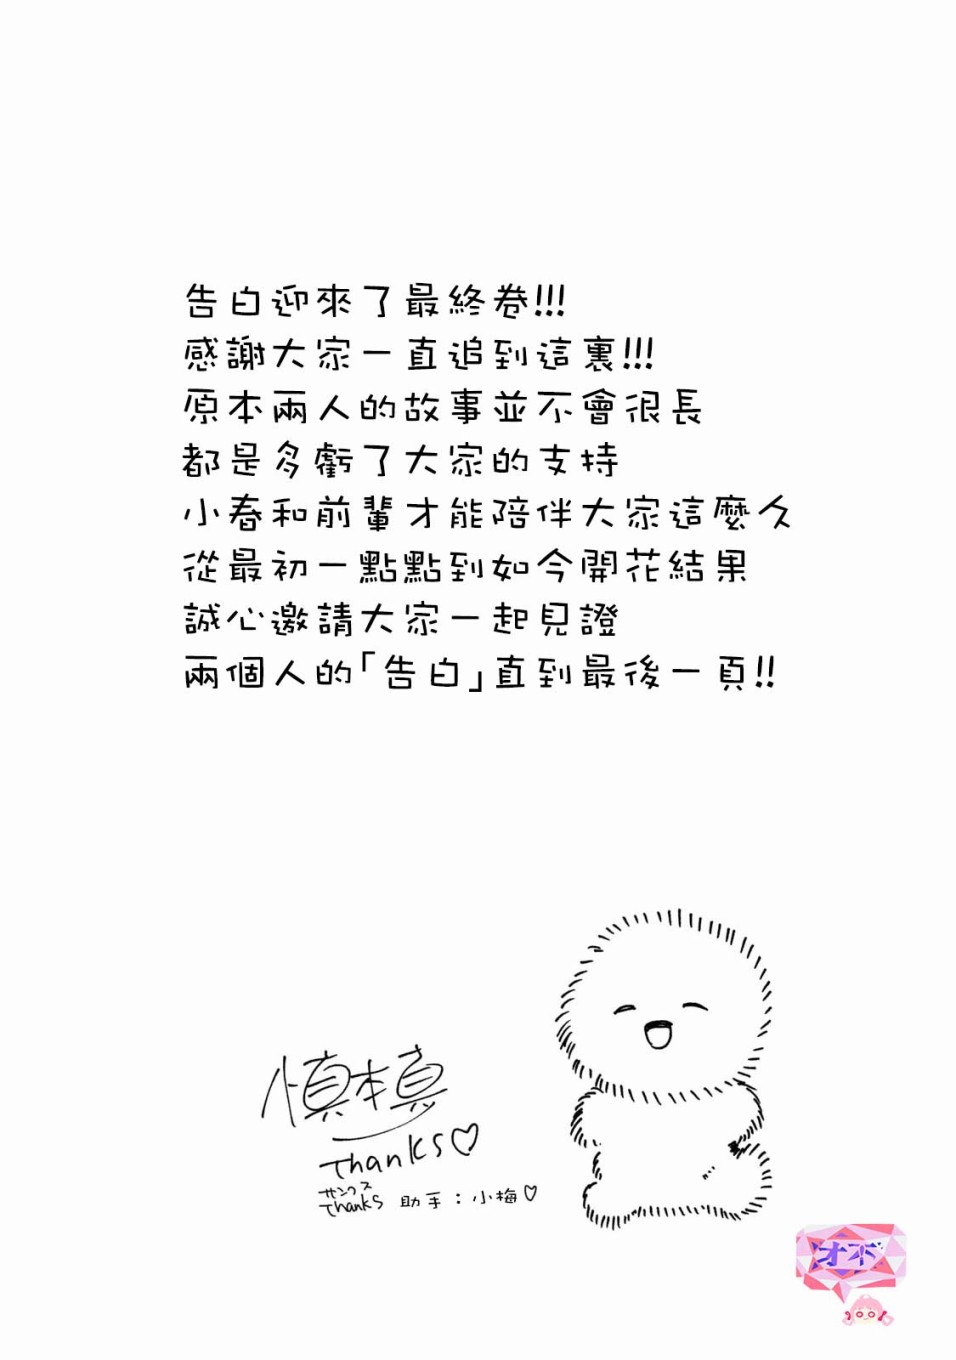 告白迎來了最終卷!!!
感謝大家一直追到這裏!!!
原本兩人的故事並不會很長
都是多虧了大家的支持
小春和前輩才能陪伴大家這麼久
從最初一點點到如今開花結果
誠心邀請大家一起見證
兩個人的「告白」直到最後一頁!!
慎本真
Thanks♡
サンクス
Thanks 助手：小梅♡
才不